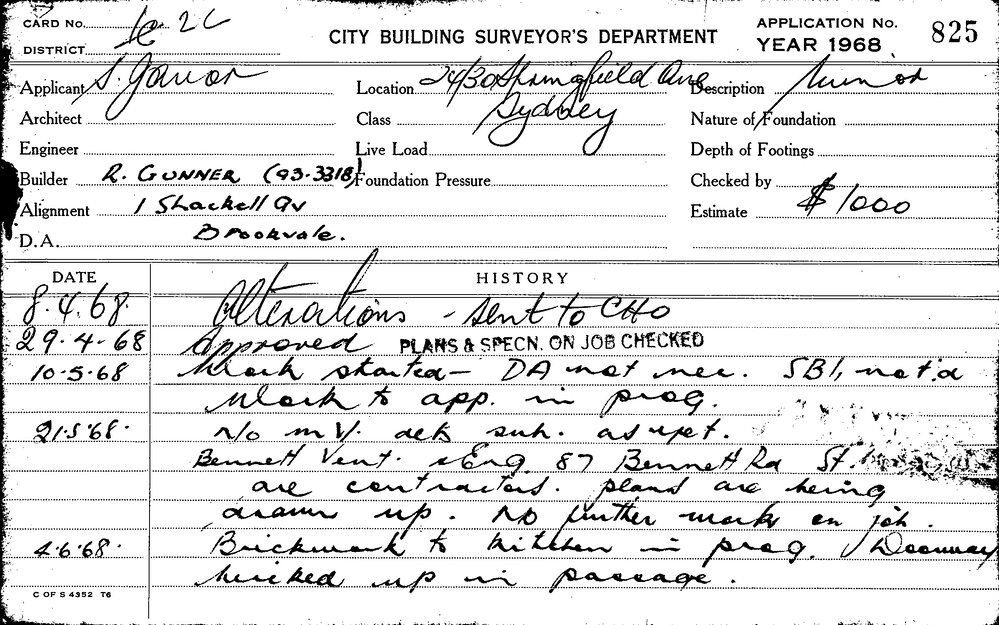 CARD No. 1c 2C
CITY BUILDING SURVEYOR'S DEPARTMENT
APPLICATION No. 825
YEAR 1968
DISTRICT
Applicant S. Location 24/30 Springfield Ave Description Minor
Sydney
Architect Class Nature of Foundation
Engineer Live Load Depth of Footings
Builder R. GUNNER (93-3318) Foundation Pressure Checked by
Alignment 1 Shackell Av Estimate $1000
D.A. Brookvale.
DATE HISTORY
8.4.68. Alterations - sent to CHO
29.4.68 Approved PLANS & SPECN. ON JOB CHECKED
10.5.68 Work started - DA not nec. SB1, not'd
Work to app. in prog.
21.5.68. No m V. dets sub. as yet.
Bennett Vent. & Eng. 87 Bennett Rd St.
are contractors. plans are being
drawn up. No further work on job.
4.6.68. Brickwork to kitchen in prog. Doorway
bricked up in passage.
C OF S 4352 T6